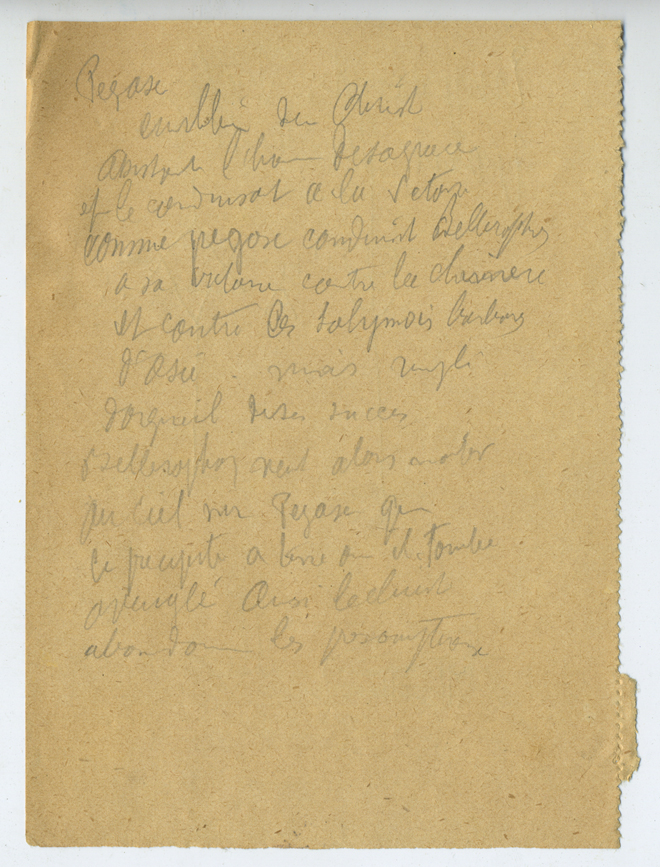 Pegase
emblème du Christ
assistant l'homme desagracé
et le conduisant a la victoire
comme pegase conduisit Bellerophon
a sa victoire contre la chimere
et contre les Solymois barbares
d'Asie mais rempli
d'orgueil de ses succes
Bellerophon veut alors monter
au ciel sur Pegase qui
le precipite a terre ou il tombe
aveuglé Ainsi le christ
abandonne les presomptueux